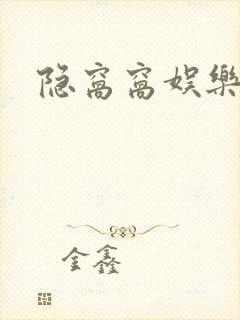 隐窝窝娱樂
金鑫